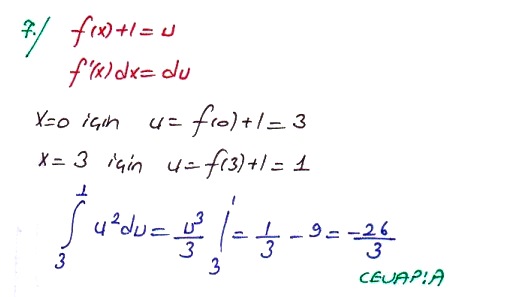 7./ f(x)+1=u
f'(x)dx=du
x=0 için u=f(0)+1=3
x=3 için u=f(3)+1=1
∫₃¹ u²du = u³/3 |₃¹ = 1/3 - 9 = -26/3
CEVAP:A